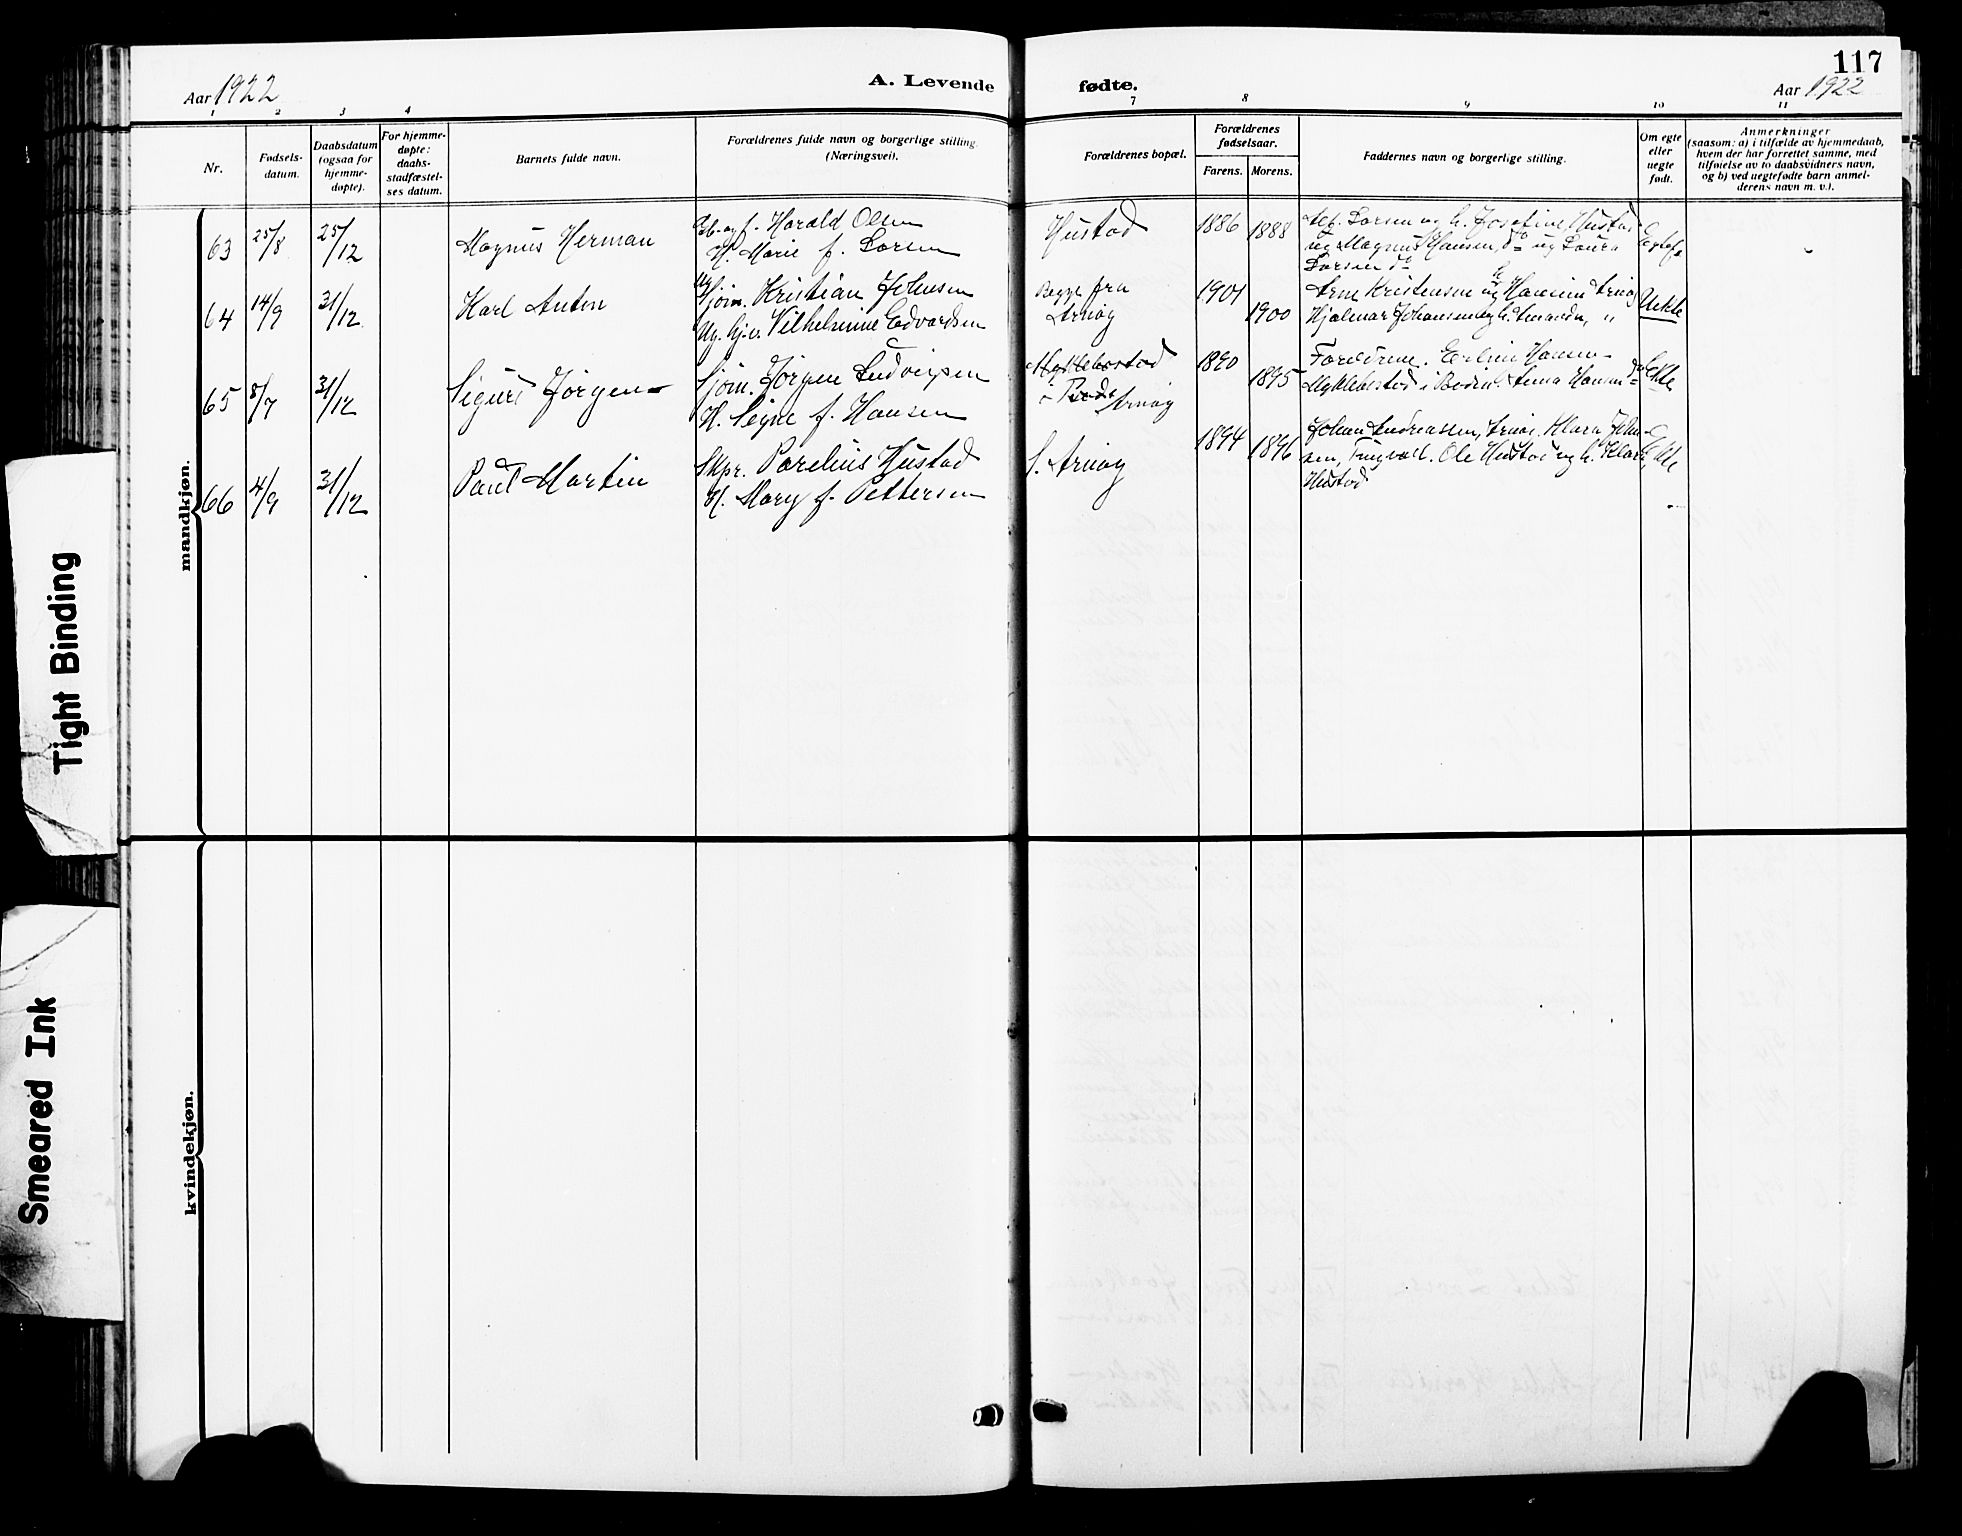 117
Aar 1922
A. Levende fødte.
Aar 1922
1 2 3 4 7 8 9 10 11
Nr.
Fødsels-
datum.
Daabsdatum
(ogsaa for
hjemme-
døpte).
For hjemme-
døpte:
daabs-
stadfæstel-
ses datum.
Barnets fulde navn.
Forældrenes fulde navn og borgerlige stilling.
(Næringsvei).
Forældrenes bopæl.
Forældrenes
fødselsaar.
Farens. Morens.
Faddernes navn og borgerlige stilling.
Om egte
eller
uegte
født.
Anmerkninger
(saasom: a) i tilfælde av hjemmedaab,
hvem der har forrettet samme, med
tilføielse av to daabsvidners navn,
og b) ved uegtefødte barn anmel-
derens navn m. v.).
mandkjøn.
63 25/8 25/12 Magnus Herman
Harald Olsen
H. Marie f. Larsen
Hustad
1886 1888
Larsen og h. Josefine, Hustad
og Magnus Hansen, do og Laura
Larsen do
64 14/9 31/12 Karl Anton
Kristian Johnsen
Vilhelmine Edvardsen
Begge fra
Arnøy
1901 1900
Arne Kristensen og Hansine Arnøy
Hjalmar Johansen og h. Amanda, "
Uekte
65 8/7 31/12 Sigurd Jørgen
Sjøm. Jørgen Ludvigsen
H. Signe f. Hansen
Myklebostad
Arnøy
1890 1895
Foreldrene. Hansen
Myklebostad i Bodin. Anna Hansen do
Ekte
66 4/9 31/12 Paul Martin
Skpr. Parelius Hustad
H. Mary f. Pettersen
S. Arnøy
1894 1896
Johan Andreassen, Arnøy. Klara John-
sen, Tungvaul. Ole Hustad og h. Klara
Hustad
Ekte
kvindekjøn.
Tight Binding
Smeared Ink